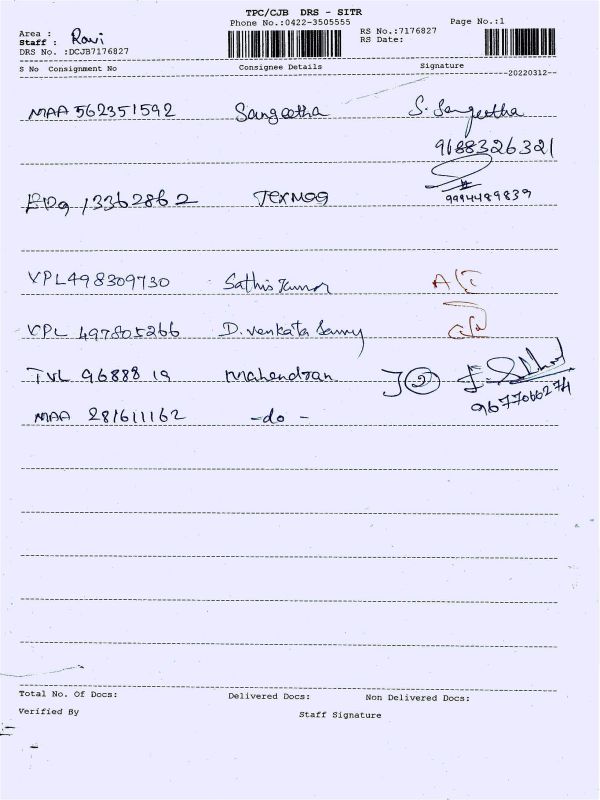 TPC/CJB DRS - SITR
Phone No.:0422-3505555 Page No.:1
Area : RS No.:7176827
Staff : Ravi RS Date:
DRS No. :DCJB7176827
S No Consignment No Consignee Details Signature
--20220312--
MAA 562351592 Sangeetha S. Sangeetha
9688326321
13362862
9994489839
VPL498309730 Sathis Kumar
VPL 497805266 D. Venkata Samy
TVL 9688819 Mahendran
9677066274
MAA 281611162 -do-
Total No. Of Docs: Delivered Docs: Non Delivered Docs:
Verified By Staff Signature